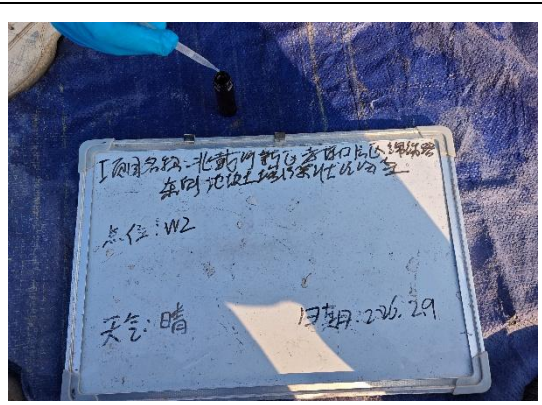 项目名称:北戴河新区赤洋口片区锦绣路
东侧地块土壤污染状况调查
点位:W2
天气:晴
日期:2026.2.9